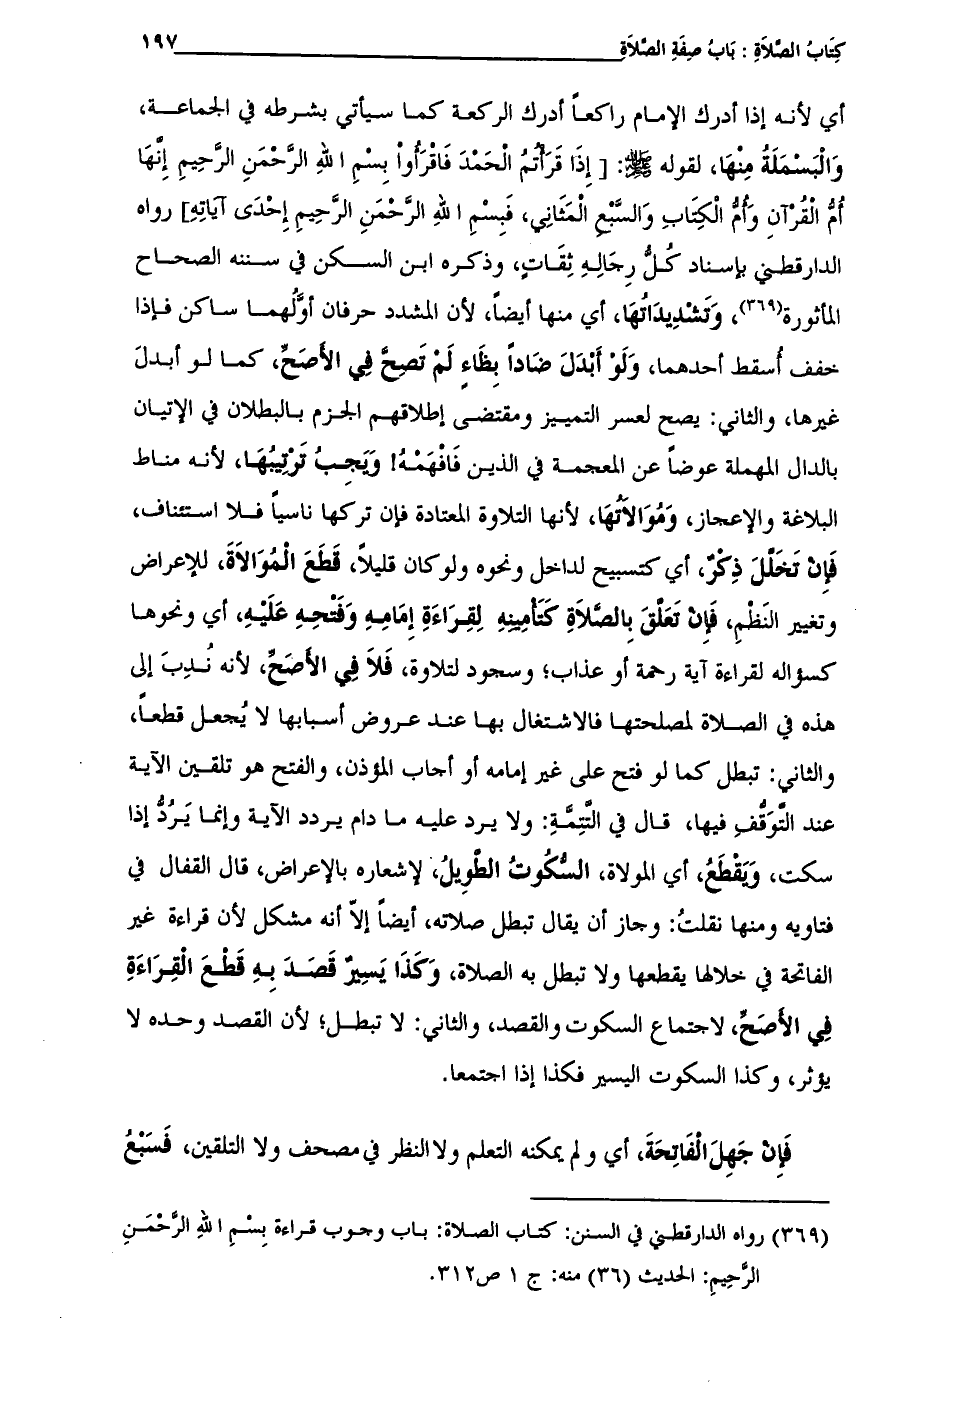 كِتَابُ الصَّلَاةِ : بَابُ صِفَةِ الصَّلَاةِ ١٩٧
أي لأنه إذا أدرك الإمام راكعاً أدرك الركعة كما سيأتي بشرطه في الجماعة،
وَالْبَسْمَلَةُ مِنْهَا، لقوله ﷺ: [ إِذَا قَرَأْتُمُ الْحَمْدَ فَاقْرَأُواْ بِسْمِ اللهِ الرَّحْمَنِ الرَّحِيمِ إِنَّهَا
أُمُّ الْقُرْآنِ وَأُمُّ الْكِتَابِ وَالسَّبْعِ الْمَثَانِي، فَبِسْمِ اللهِ الرَّحْمَنِ الرَّحِيمِ إِحْدَى آيَاتِهِ] رواه
الدارقطني بإسناد كُلُّ رِجَالِهِ ثِقَاتٍ، وذكره ابن السكن في سننه الصحاح
المأثورة(٣٦٩)، وَتَشْدِيدَاتُهَا، أي منها أيضاً، لأن المشدد حرفان أوَّلُهما ساكن فإذا
خفف أُسقط أحدهما، وَلَوْ أَبْدَلَ ضَاداً بِظَاءٍ لَمْ تَصِحَّ فِي الأَصَحِّ، كما لو أبدلَ
غيرها، والثاني: يصح لعسر التمييز ومقتضى إطلاقهم الجزم بالبطلان في الإتيان
بالدال المهملة عوضاً عن المعجمة في الذين فَافْهَمْهُ! وَيَجِبُ تَرْتِيبُهَا، لأنه مناط
البلاغة والإعجاز، وَمُوَالاَتُهَا، لأنها التلاوة المعتادة فإن تركها ناسياً فلا استئناف،
فَإِنْ تَخَلَّلَ ذِكْرٌ، أي كتسبيح لداخل ونحوه ولو كان قليلاً، قَطَعَ الْمُوَالاَةَ، للإعراض
وتغيير النَظْمِ، فَإِنْ تَعَلَّقَ بِالصَّلاَةِ كَتَأْمِينِهِ لِقِرَاءَةِ إِمَامِهِ وَفَتْحِهِ عَلَيْهِ، أي ونحوها
كسؤاله لقراءة آية رحمة أو عذاب؛ وسجود لتلاوة، فَلاَ فِي الأَصَحِّ، لأنه نُدِبَ إلى
هذه في الصلاة لمصلحتها فالاشتغال بها عند عروض أسبابها لا يُجعل قطعاً،
والثاني: تبطل كما لو فتح على غير إمامه أو أجاب المؤذن، والفتح هو تلقين الآية
عند التَّوَقُّفِ فيها، قال في التَّتِمَّةِ: ولا يرد عليه ما دام يردد الآية وإنما يَرُدُّ إذا
سكت، وَيَقْطَعُ، أي المولاة، السُّكُوتُ الطَّوِيلُ، لإشعاره بالإعراض، قال القفال في
فتاويه ومنها نقلتُ: وجاز أن يقال تبطل صلاته، أيضاً إلاّ أنه مشكل لأن قراءة غير
الفاتحة في خلالها يقطعها ولا تبطل به الصلاة، وَكَذَا يَسِيرٌ قَصَدَ بِهِ قَطْعَ الْقِرَاءَةِ
فِي الأَصَحِّ، لاجتماع السكوت والقصد، والثاني: لا تبطل؛ لأن القصد وحده لا
يؤثر، وكذا السكوت اليسير فكذا إذا اجتمعا.
فَإِنْ جَهِلَ الْفَاتِحَةَ، أي و لم يمكنه التعلم ولا النظر في مصحف ولا التلقين، فَسَبْعُ
(٣٦٩) رواه الدارقطني في السنن: كتاب الصلاة: باب وجوب قراءة بِسْمِ اللهِ الرَّحْمَنِ
الرَّحِيمِ: الحديث (٣٦) منه: ج ١ ص٣١٢.